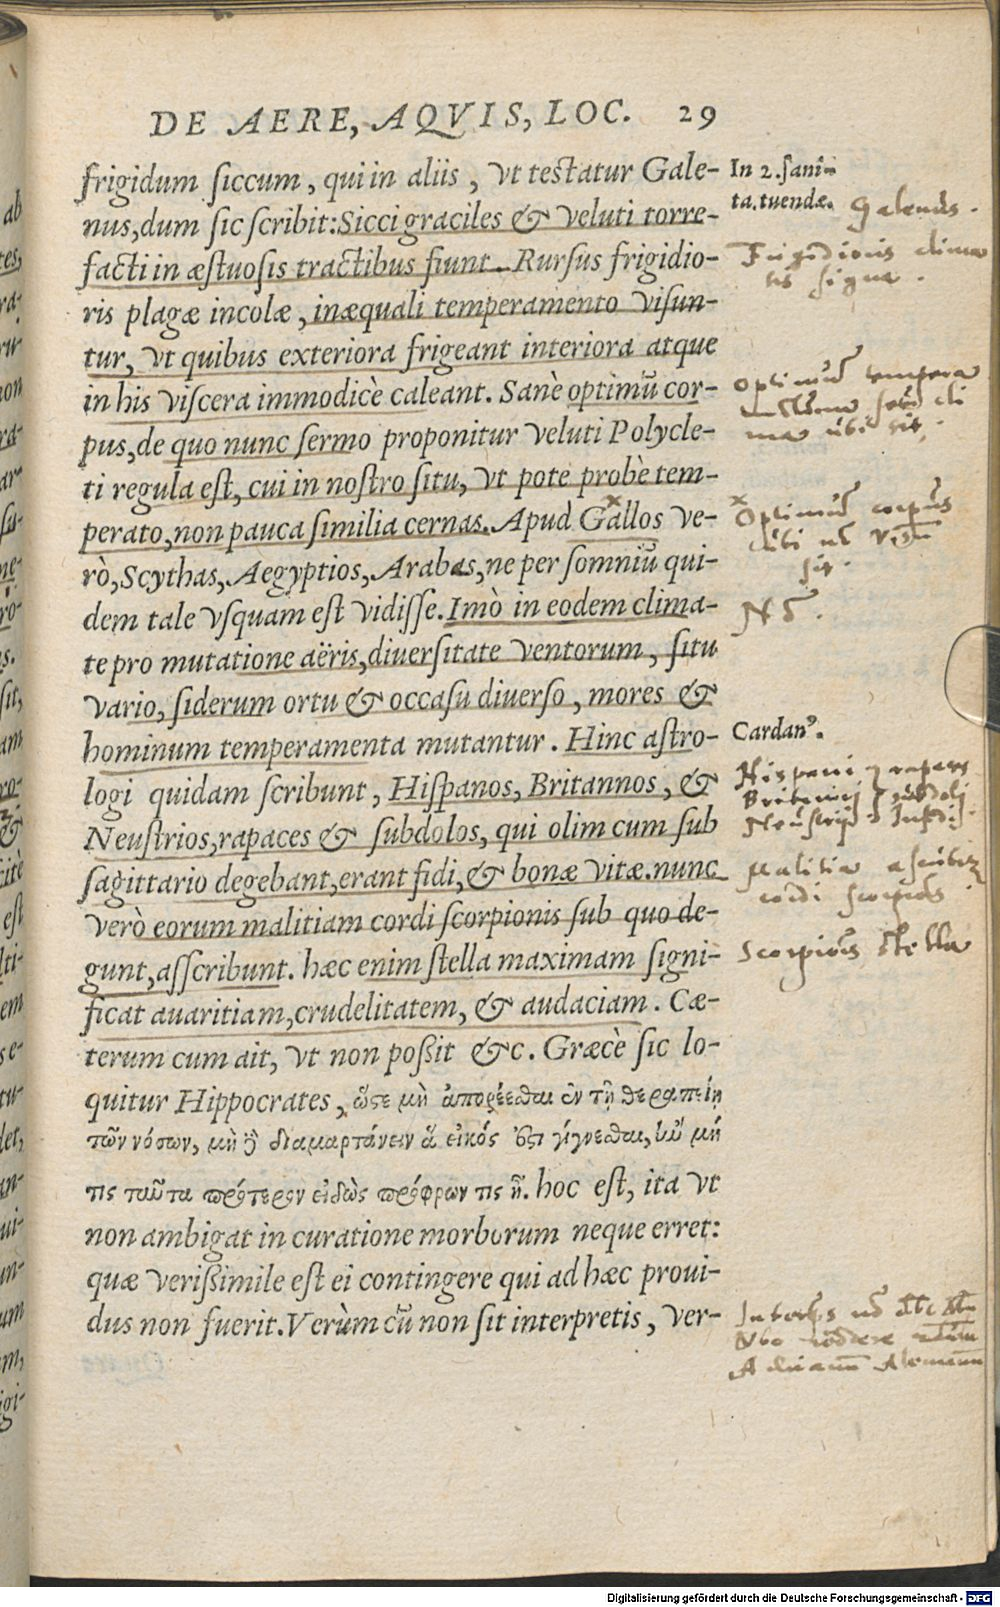 DE AERE, AQVIS, LOC. 29
frigidum siccum, qui in aliis, vt testatur Gale-
nus, dum sic scribit: Sicci graciles & veluti torre-
facti in æstuosis tractibus fiunt. Rursus frigidio-
ris plagæ incolæ, inæquali temperamento visun-
tur, vt quibus exteriora frigeant interiora atque
in his viscera immodicè caleant. Sanè optimũ cor-
pus, de quo nunc sermo proponitur veluti Polycle-
ti regula est, cui in nostro situ, vt pote probè tem-
perato, non pauca similia cernas. Apud Gallos ve-
rò, Scythas, Aegyptios, Arabas, ne per somniũ qui-
dem tale vsquam est vidisse. Imò in eodem clima-
te pro mutatione aëris, diuersitate ventorum, situ
vario, siderum ortu & occasu diuerso, mores &
hominum temperamenta mutantur. Hinc astro-
logi quidam scribunt, Hispanos, Britannos, &
Neustrios, rapaces & subdolos, qui olim cum sub
sagittario degebant, erant fidi, & bonæ vitæ. nunc
verò eorum malitiam cordi scorpionis sub quo de-
gunt, asscribunt. hæc enim stella maximam signi-
ficat auaritiam, crudelitatem, & audaciam. Cæ-
terum cum ait, vt non possit &c. Græcè sic lo-
quitur Hippocrates, ὥστε μὴ ἀπορέεσθαι ἐν τῇ θεραπείῃ
τῶν νόσων, μὴ δὲ διαμαρτάνειν ἃ εἰκός ἐστι γίγνεσθαι, ἢν μή
τις ταῦτα πρότερον εἰδὼς πρόφρων τις ᾖ. hoc est, ita vt
non ambigat in curatione morborum neque erret:
quæ verissimile est ei contingere qui ad hæc proui-
dus non fuerit. Verùm cũ non sit interpretis, ver-
In 2. sani-
ta. tuendæ.
Galenus.
Frigidioris clima
tis signa.
Optimũ tempera
clima ubi sit.
x Optimũ corpus
ubi visũ
sit.
Cardan⁹.
Hispani rapaces
Britanni subdoli
Neustrij
Malitia
cordi scorpionis
Scorpionis stella